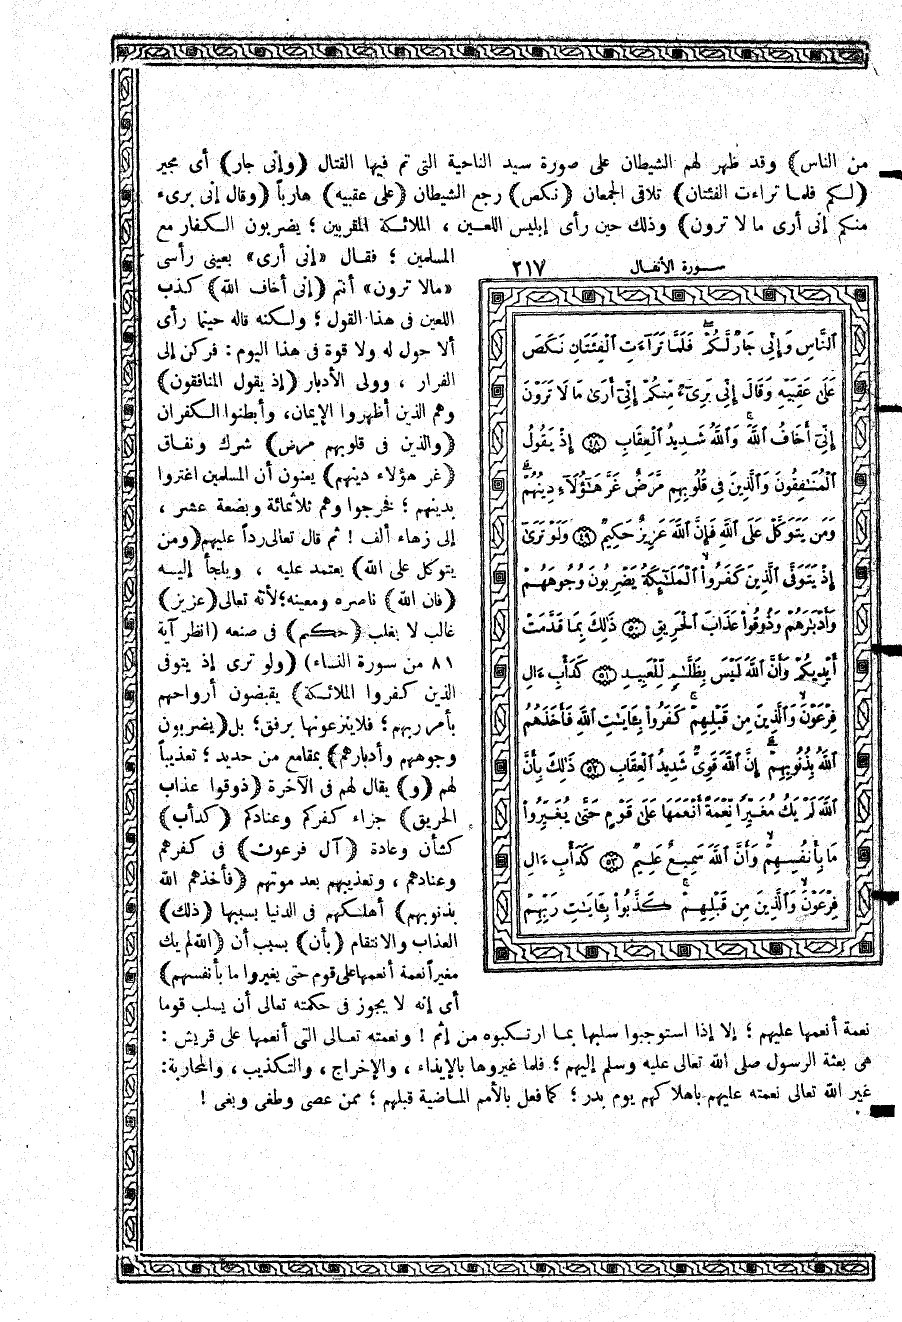 من الناس) وقد ظهر لهم الشيطان على صورة سيد الناحية التى تم فيها القتال (وإنى جار) أى مجير
(لكم فلما تراءت الفئتان) تلاقى الجمعان (نكص) رجع الشيطان (على عقبيه) هارباً (وقال إنى برىء
منكم إنى أرى ما لا ترون) وذلك حين رأى إبليس اللعين ، الملائكة المقربين ؛ يضربون الكفار مع
المسلمين ؛ فقال «إنى أرى» بعينى رأسى
«مالا ترون» أنتم (إنى أخاف الله) كذب
اللعين فى هذا القول ؛ ولكنه قاله حينما رأى
ألا حول له ولا قوة فى هذا اليوم : فركن إلى
الفرار ، وولى الأدبار (إذ يقول المنافقون)
وهم الذين أظهروا الإيمان، وأبطنوا الكفران
(والذين فى قلوبهم مرض) شرك ونفاق
(غر هؤلاء دينهم) يعنون أن المسلمين اغتروا
بدينهم ؛ فخرجوا وهم ثلاثمائة وبضعة عشر ،
إلى زهاء ألف ! ثم قال تعالى رداً عليهم (ومن
يتوكل على الله) يعتمد عليه ، ويلجأ إليه
(فان الله) ناصره ومعينه؛ لأنه تعالى (عزيز)
غالب لا يغلب (حكيم) فى صنعه (انظر آية
٨١ من سورة النساء) (ولو ترى إذ يتوفى
الذين كفروا الملائكة) يقبضون أرواحهم
بأمر ربهم ؛ فلا ينزعونها برفق؛ بل (يضربون
وجوههم وأدبارهم) بمقامع من حديد ؛ تعذيباً
لهم (و) يقال لهم فى الآخرة (ذوقوا عذاب
الحريق) جزاء كفركم وعنادكم (كدأب)
كشأن وعادة (آل فرعون) فى كفرهم
وعنادهم ، وتعذيبهم بعد موتهم (فأخذهم الله
بذنوبهم) أهلكهم فى الدنيا بسببها (ذلك)
العذاب والانتقام (بأن) بسبب أن (الله لم يك
مغيراً نعمة أنعمها على قوم حتى يغيروا ما بأنفسهم)
أى إنه لا يجوز فى حكمته تعالى أن يسلب قوما
سورة الأنفال ٢١٧
ٱلنَّاسِ وَإِنِّى جَارٌ لَّكُمْ ۖ فَلَمَّا تَرَآءَتِ ٱلْفِئَتَانِ نَكَصَ
عَلَىٰ عَقِبَيْهِ وَقَالَ إِنِّى بَرِىٓءٌ مِّنكُمْ إِنِّىٓ أَرَىٰ مَا لَا تَرَوْنَ
إِنِّىٓ أَخَافُ ٱللَّهَ ۚ وَٱللَّهُ شَدِيدُ ٱلْعِقَابِ ٤٨ إِذْ يَقُولُ
ٱلْمُنَٰفِقُونَ وَٱلَّذِينَ فِى قُلُوبِهِم مَّرَضٌ غَرَّ هَٰٓؤُلَآءِ دِينُهُمْ ۗ
وَمَن يَتَوَكَّلْ عَلَى ٱللَّهِ فَإِنَّ ٱللَّهَ عَزِيزٌ حَكِيمٌ ٤٩ وَلَوْ تَرَىٰٓ
إِذْ يَتَوَفَّى ٱلَّذِينَ كَفَرُوا۟ ۙ ٱلْمَلَٰٓئِكَةُ يَضْرِبُونَ وُجُوهَهُمْ
وَأَدْبَٰرَهُمْ وَذُوقُوا۟ عَذَابَ ٱلْحَرِيقِ ٥٠ ذَٰلِكَ بِمَا قَدَّمَتْ
أَيْدِيكُمْ وَأَنَّ ٱللَّهَ لَيْسَ بِظَلَّٰمٍ لِّلْعَبِيدِ ٥١ كَدَأْبِ ءَالِ
فِرْعَوْنَ ۙ وَٱلَّذِينَ مِن قَبْلِهِمْ ۚ كَفَرُوا۟ بِـَٔايَٰتِ ٱللَّهِ فَأَخَذَهُمُ
ٱللَّهُ بِذُنُوبِهِمْ ۗ إِنَّ ٱللَّهَ قَوِىٌّ شَدِيدُ ٱلْعِقَابِ ٥٢ ذَٰلِكَ بِأَنَّ
ٱللَّهَ لَمْ يَكُ مُغَيِّرًا نِّعْمَةً أَنْعَمَهَا عَلَىٰ قَوْمٍ حَتَّىٰ يُغَيِّرُوا۟
مَا بِأَنفُسِهِمْ ۙ وَأَنَّ ٱللَّهَ سَمِيعٌ عَلِيمٌ ٥٣ كَدَأْبِ ءَالِ
فِرْعَوْنَ ۙ وَٱلَّذِينَ مِن قَبْلِهِمْ ۚ كَذَّبُوا۟ بِـَٔايَٰتِ رَبِّهِمْ
نعمة أنعمها عليهم ؛ إلا إذا استوجبوا سلبها بما ارتكبوه من إثم ! ونعمته تعالى التى أنعمها على قريش :
هى بعثة الرسول صلى الله تعالى عليه وسلم إليهم ؛ فلما غيروها بالإيذاء ، والإخراج ، والتكذيب ، والمحاربة:
غير الله تعالى نعمته عليهم باهلاكهم يوم بدر ؛ كما فعل بالأمم الماضية قبلهم ؛ ممن عصى وطغى وبغى !